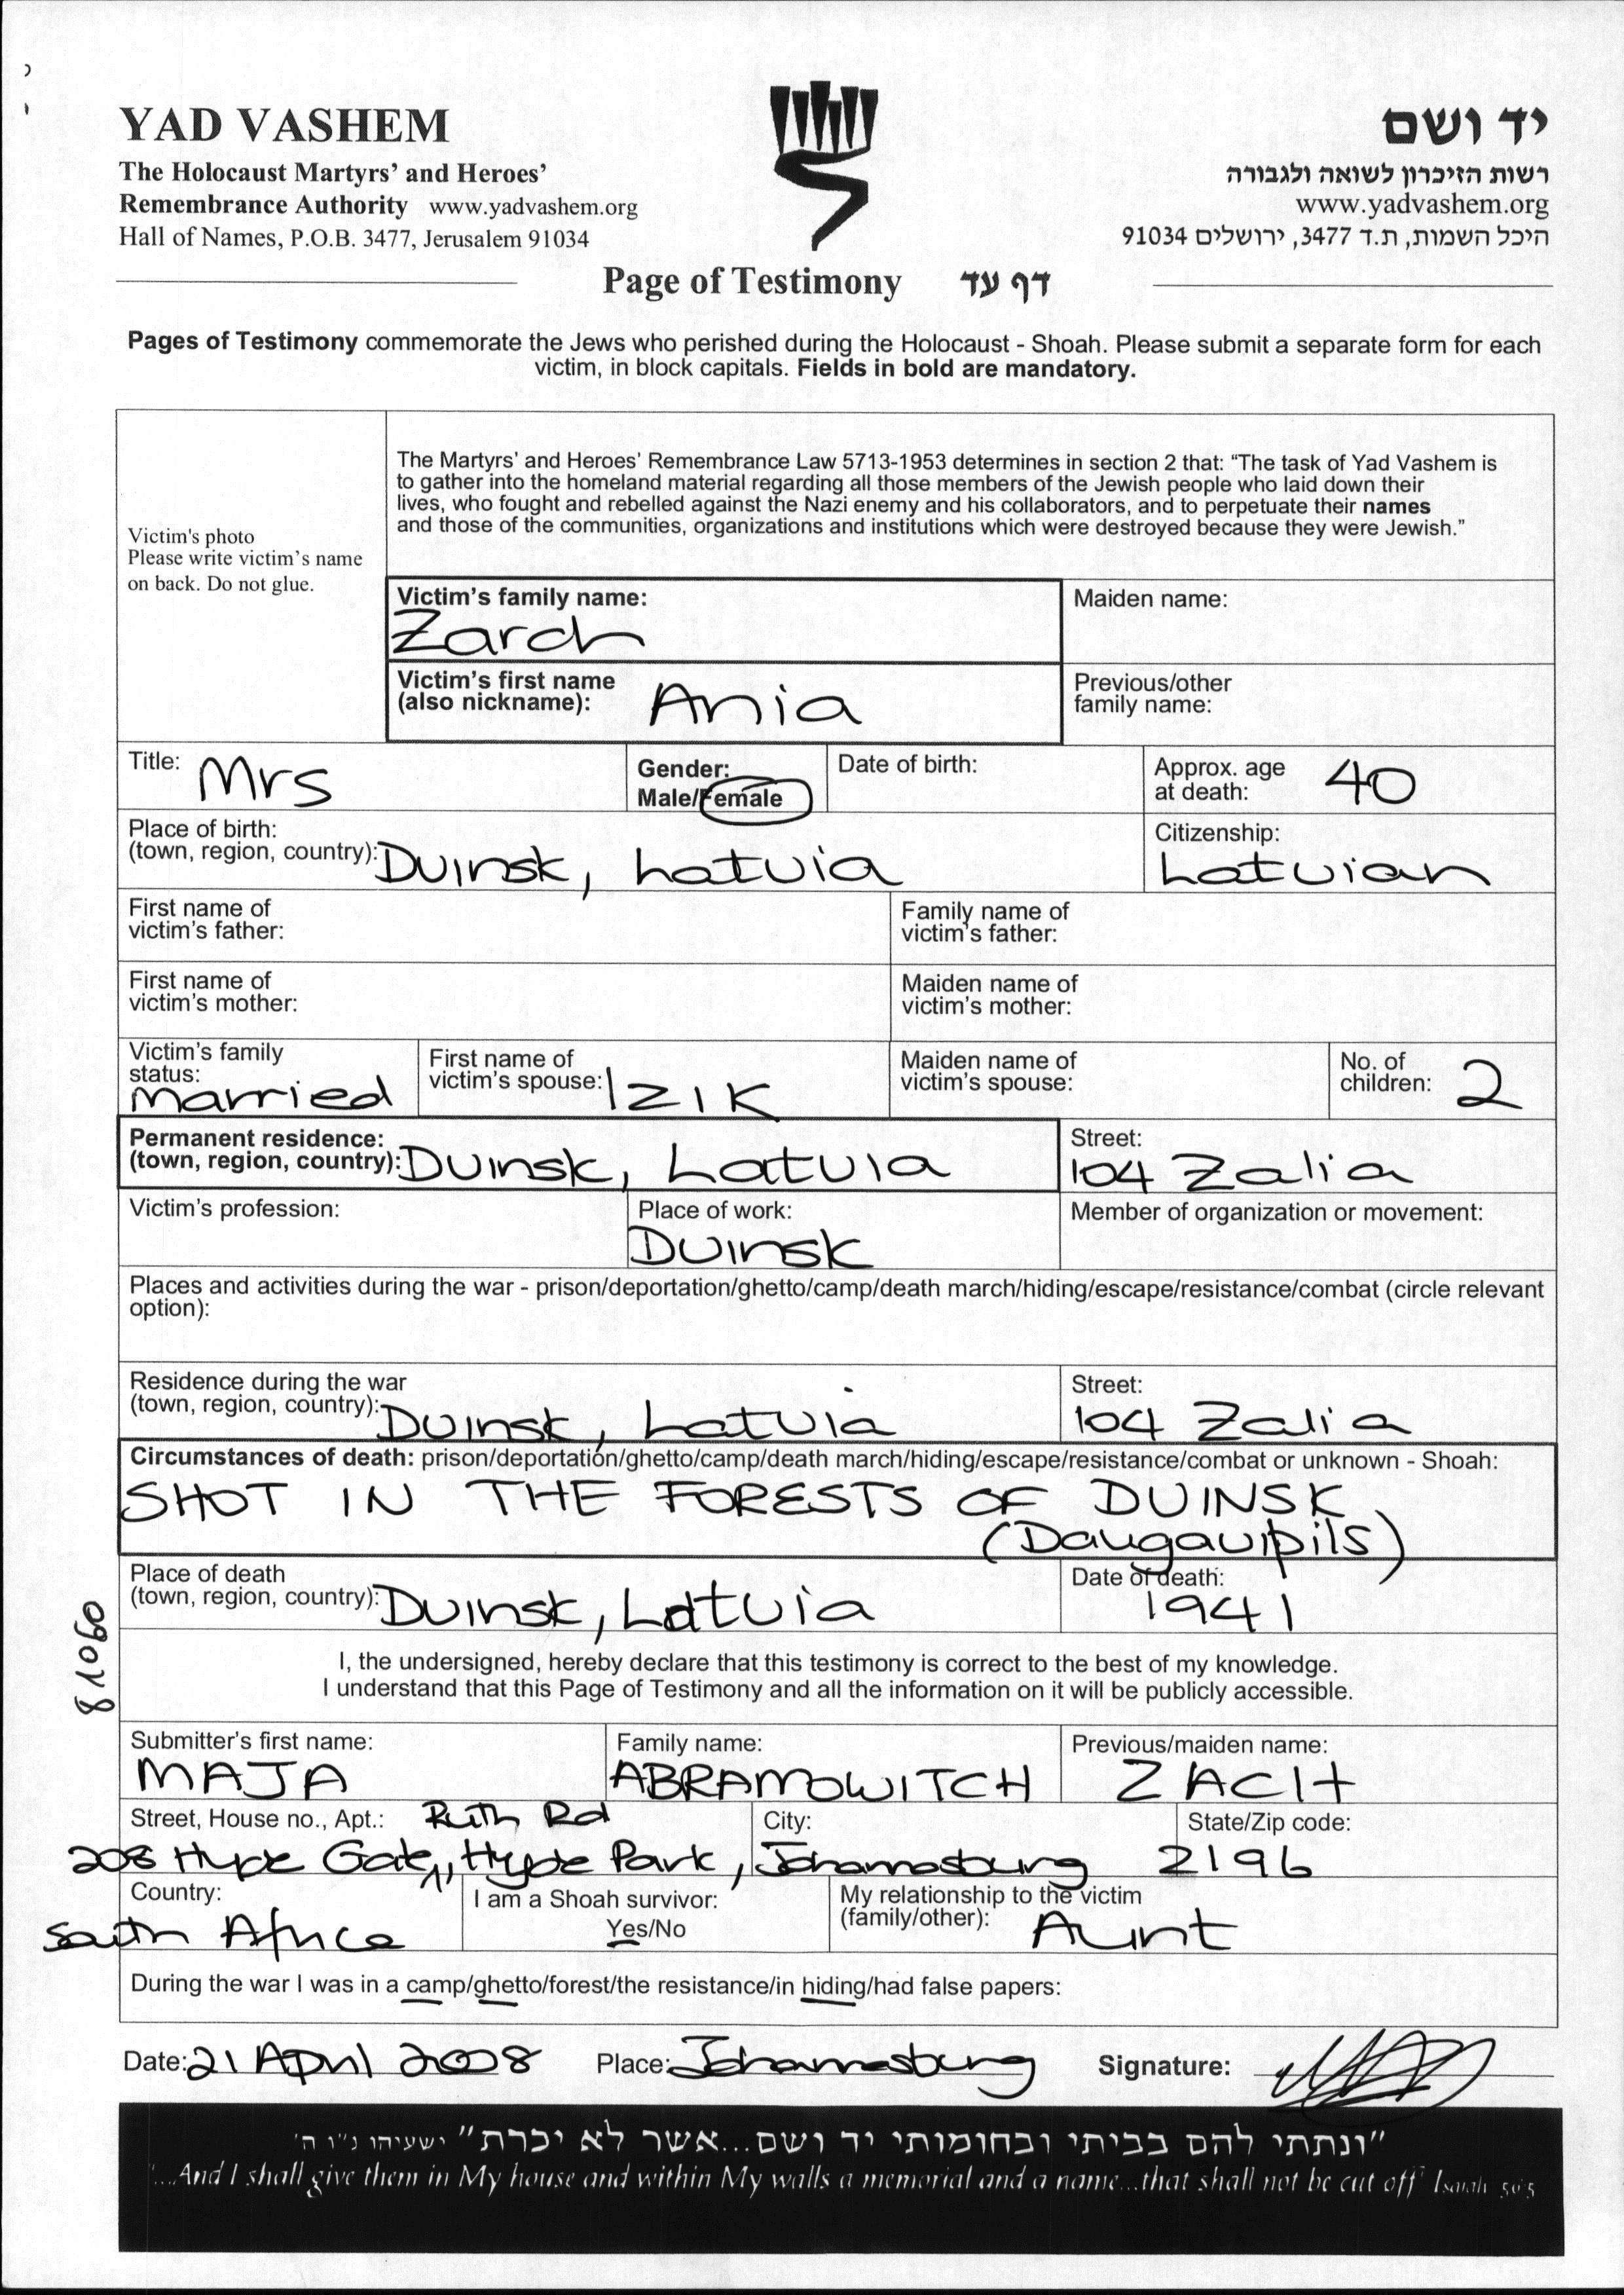 YAD VASHEM
The Holocaust Martyrs' and Heroes'
Remembrance Authority www.yadvashem.org
Hall of Names, P.O.B. 3477, Jerusalem 91034
יד ושם
רשות הזיכרון לשואה ולגבורה
www.yadvashem.org
היכל השמות, ת.ד 3477, ירושלים 91034
Page of Testimony דף עד
Pages of Testimony commemorate the Jews who perished during the Holocaust - Shoah. Please submit a separate form for each
victim, in block capitals. Fields in bold are mandatory.
Victim's photo
Please write victim's name
on back. Do not glue.
The Martyrs' and Heroes' Remembrance Law 5713-1953 determines in section 2 that: "The task of Yad Vashem is
to gather into the homeland material regarding all those members of the Jewish people who laid down their
lives, who fought and rebelled against the Nazi enemy and his collaborators, and to perpetuate their names
and those of the communities, organizations and institutions which were destroyed because they were Jewish."
Victim's family name:
Zarch
Maiden name:
Victim's first name
(also nickname): Ania
Previous/other
family name:
Title: Mrs
Gender:
Male/Female
Date of birth:
Approx. age
at death: 40
Place of birth:
(town, region, country): Dvinsk, Latvia
Citizenship:
Latvian
First name of
victim's father:
Family name of
victim's father:
First name of
victim's mother:
Maiden name of
victim's mother:
Victim's family
status:
Married
First name of
victim's spouse: IZIK
Maiden name of
victim's spouse:
No. of
children: 2
Permanent residence:
(town, region, country): Dvinsk, Latvia
Street:
104 Zalia
Victim's profession:
Place of work:
Dvinsk
Member of organization or movement:
Places and activities during the war - prison/deportation/ghetto/camp/death march/hiding/escape/resistance/combat (circle relevant
option):
Residence during the war
(town, region, country): Dvinsk, Latvia
Street:
104 Zalia
Circumstances of death: prison/deportation/ghetto/camp/death march/hiding/escape/resistance/combat or unknown - Shoah:
SHOT IN THE FORESTS OF DVINSK
(Daugavpils)
Place of death
(town, region, country): Dvinsk, Latvia
Date of death:
1941
81060
I, the undersigned, hereby declare that this testimony is correct to the best of my knowledge.
I understand that this Page of Testimony and all the information on it will be publicly accessible.
Submitter's first name:
MAJA
Family name:
ABRAMOWITCH
Previous/maiden name:
ZACH
Street, House no., Apt.: Ruth Rd
208 Hyde Gate, Hyde Park,
City:
Johannesburg
State/Zip code:
2196
Country:
South Africa
I am a Shoah survivor:
Yes/No
My relationship to the victim
(family/other): Aunt
During the war I was in a camp/ghetto/forest/the resistance/in hiding/had false papers:
Date: 21 April 2008 Place: Johannesburg Signature:
"ונתתי להם בביתי ובחומותי יד ושם...אשר לא יכרת" ישעיהו נ"ו ה'
"...And I shall give them in My house and within My walls a memorial and a name...that shall not be cut off" Isaiah 56:5